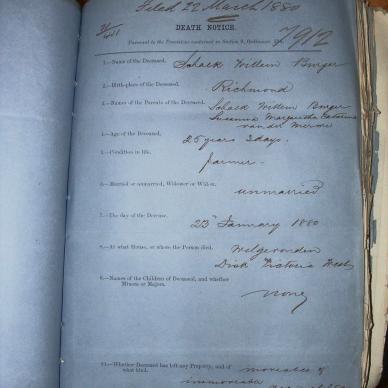 Filed 22 March 1880
DEATH NOTICE.
Pursuant to the Provisions contained in Section 9, Ordinance
7912
1.—Name of the Deceased.
Schalk Willem Burger
2.—Birth-place of the Deceased.
Richmond
3.—Names of the Parents of the Deceased.
Schalk Willem Burger
Susanna Margaretha Catarina
van der Merwe
4.—Age of the Deceased.
25 years 3 days.
5.—Condition in life.
farmer.
6.—Married or unmarried, Widower or Widow.
unmarried
7.—The day of the Decease.
23 January 1880
8.—At what House, or where the Person died.
Welgevonden
Dist Victoria West
9.—Names of the Children of Deceased, and whether
Minors or Majors.
none
10.—Whether Deceased has left any Property, and of
what kind.
moveable &
immoveable